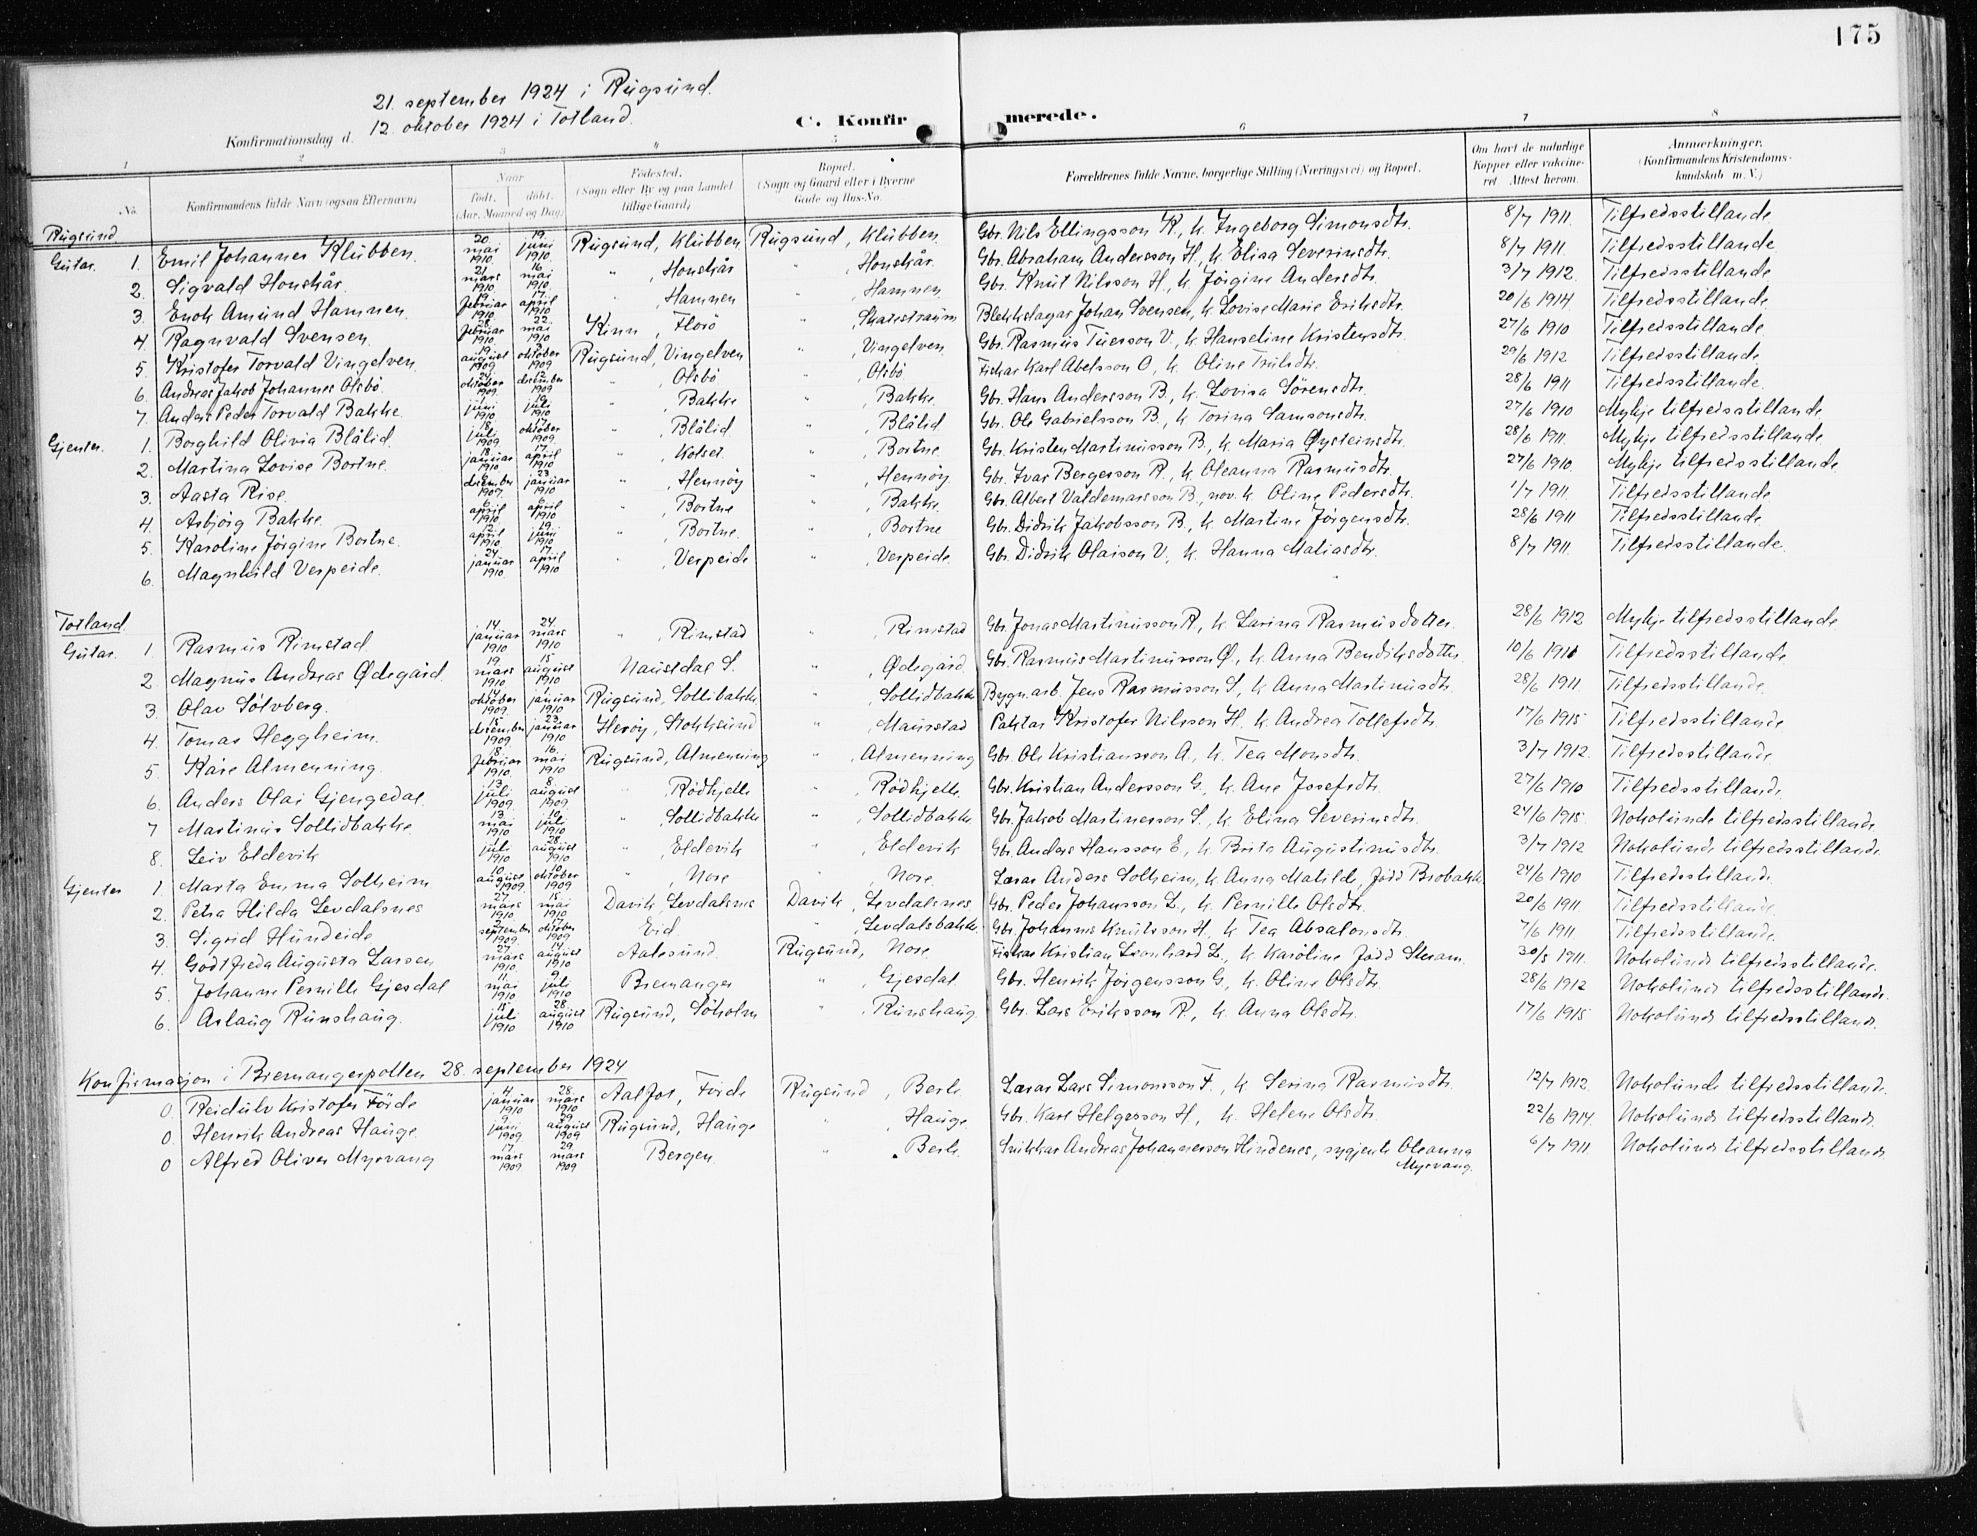 175
21. september 1924 i Rugsund.
Konfirmationsdag d. 12. oktober 1924 i Totland.
C. Konfirmerede.
1 2 3 4 5 6 7 8
No. Konfirmandens fulde Navn (ogsaa Efternavn) Naar født. døbt. (Aar, Maaned og Dag) Fødested. (Sogn eller By og paa Landet tillige Gaard) Bopæl. (Sogn og Gaard eller i Byerne Gade og Hus-No. Forældrenes fulde Navne, borgerlige Stilling (Næringsvei) og Bopæl. Om havt de naturlige Kopper eller vakcineret. Attest herom. Anmærkninger. (Konfirmandens Kristendomskundskab m. V.)
Rugsund
Gutar. 1. Emil Johannes Klubben. 20 mai 1910 19 juni 1910 Rugsund, Klubben Rugsund, Klubben. Gbr. Nils Ellingsson K, k. Ingeborg Simonsdtr. 8/7 1911. Tilfredsstillande
2. Sigvald Honskår. 21 mars 1910 16 mai 1910 " , Honskår " , Honskår. Gbr. Abraham Andersson H., k. Elisa Severinsdtr. 8/7 1911. Tilfredsstillande
3. Enok Amund Hamnen. 19 februar 1910 17. april 1910 " , Hamnen " , Hamnen. Gbr. Knut Nilsson H., k. Jørgine Andersdtr. 3/7 1912. Tilfredsstillande.
4 Ragnvald Svensen. februar 1910 22. mai 1910 Kinn, Florö " , Skatestraum Blekkslagar Johan Svensen, k. Lovise Marie Eriksdtr. 20/6 1914. Tilfredsstillande.
5. Kristofer Torvald Vingelven. 19. august 1909 oktober 1909 Rugsund, Vingelven " , Vingelven. Gbr. Rasmus Tuerson V., k. Hanseline Kristensdtr. 27/6 1910 Tilfredsstillande
6. Andreas Jakob Johannes Olsbö 24 oktober 1909. 12 desember 1909 " , Olsbö " , Olsbö Fiskar Karl Abelsson O., k. Oline 29/6 1912 Tilfredsstillande.
7. Anders Peder Torvald Bakke. juni 1910 juli 1910 " , Bakke " , Bakke. Gbr. Hans Andersson B., k. Lovisa Sörensdtr. 28/6 1911 Tilfredsstillande.
Gjenter. 1. Borghild Olivia Blålid. 18. juli 1909. 17 oktober 1909. " , Blålid. " , Blålid Gbr. Ole Gabrielsson B., k. Torina Samsonsdtr. 27/6 1910 Mykje tilfredsstillande
2. Martina Lovise Bortne. 18. januar 1910 17. april 1910 " , Kolset " , Bortne Gbr. Kristen Martinusson B., k. Maria Øysteinsdtr. 28/6 1911. Mykje tilfredsstillande.
3. Aasta Rise. desember 1909. 23 januar 1910 " , Hennöy " , Hennöy Gbr. Ivar Bergersson R., k. Oleanna Rasmusdtr. 27/6 1910. Mykje tilfredsstillande
4. Asbjörg Bakke. 6 april 1910 april 1910 " , Bortne " , Bakke. Gbr. Albert Valdemarsson B., nov. k. Oline Pedersdtr. 1/7 1911. Tilfredsstillande.
5. Karoline Jörgine Bortne. 2. april 1910 19. juni 1910 " , Bortne. " , Bortne Gbr. Didrik Jakobsson B., k. Martine Jörgensdtr. 28/6 1911 Tilfredsstillande
6. Magnhild Verpeide. 24. januar 1910. 17 april 1910 " , Verpeide " , Verpeide Gbr. Didrik Olaison V., k. Hanna Matiasdtr. 8/7 1911. Tilfredsstillande.
Totland.
Gutar. 1. Rasmus Rimstad 14. januar 1910 24. mars 1910 " , Rimstad " , Rimstad Gbr. Jonas Martinusson R., k. Larina Rasmusdotter. 28/6 1912 Mykje tilfredsstillande
2 Magnus Andreas Ødegård. 19. mars 1910 15. august 1910 Naustdal S. " , Ødegård. Gbr. Rasmus Martinusson Ø., k. Anna Bendiksdotter 10/6 1910 Tilfredsstillande
3. Olav Sölvberg. 14 oktober 1909. 1. januar 1910 Rugsund, Sollibakke " , Sollidbakke Bygn.arb. Jens Rasmusson S., k. Anna Martinusdtr. 28/6 1911. Tilfredsstillande.
4. Tomas Heggheim. 15 desember 1909 23. januar 1910 Heröy, Stokksund " , Maurstad Paktar Kristofer Nilsson H. k. Andrea Tollefsdtr. 17/6 1915 Tilfredsstillande
5. Kåre Almenning. 18. februar 1910. 16. mai 1910 Rugsund, Almenning " , Almenning Gbr. Ole Kristiansson A., k. Tea Monsdtr. 3/7 1912. Tilfredsstillande.
6. Anders Olai Gjengedal. 13 juli 1909. 8. august 1909. " , Rödkjelle " , Rödhjelle Gbr. Kristian Andersson G., k. Ane Josefsdtr. 27/6 1910 Tilfredsstillande.
7 Martinus Sollidbakke. 13. mai 1910 10. juli 1910 " , Sollidbakke " , Sollidbakke Gbr. Jakob Martinusson S., k. Elina Severinsdtr. 24/6 1915. Nokolunde tilfredsstillande
8. Leiv Eldevik juli 1910 28. august 1910 " , Eldevik " , Eldevik Gbr. Anders Hansson E, k. Brita Augustinusdtr. 3/7 1912 Nokolunde tilfredsstillande.
Gjenter 1. Marta Emma Solheim 10 august 1909. 10 oktober 1909 " , Nore " , Nore. Lærar Anders Solheim, k. Anna Matilde, född Brobakke 24/6 1910 Tilfredsstillande.
2. Petra Hilda Levdalsnes 27 mars 1910. 15 mai 1910 Davik, Levdalsnes Davik, Levdalsnes Gbr. Peder Johansson L., k. Pernille Olsdtr. 20/6 1911. Tilfredsstillande.
3. Sigrid Hundeide. september 1909. 17 oktober 1909 Eid " , Levdalsbakke Gbr. Johannes Knutsson H., k. Tea Absalonsdtr. 7/6 1911 Tilfredsstillande.
4. Godtfreda Augusta Larsen 27. mars 1910. 14. august 1910 Aalesund. Rugsund, Nore. Fiskar Kristian Leonhard L., k. Karoline född Steram. 30/5 1911. Nokolunde tilfredsstillande.
5. Johanne Pernille Gjesdal 11. mai 1910 9. juli 1910 Bremanger " , Gjesdal. Gbr. Henrik Jörgensson G., k. Oline Olsdtr. 28/6 1912 Nokolunde tilfredsstillande.
6. Aslaug Runshaug. 15 juli 1910 28. august 1910 Rugsund, Söholm " , Runshaug Gbr. Lars Eriksson R., k. Anna Olsdtr. 17/6 1915 Nokolunde tilfredsstillande.
Konfirmasjon i Bremangerpollen 28. september 1924
0. Reidulv Kristofer Förde 4. januar 1910 28. mars 1910 Aalfot, Förde Rugsund, Berle Lærar Lars Simonsson F., k Serina Rasmusdtr. 12/7 1912. Nokolunde tilfredsstillande.
0. Henrik Andreas Hauge. 9. juni 1909. 29 august 1909 Rugsund, Hauge " , Hauge Gbr. Karl Helgesson H., k. Helene Olsdtr 22/6 1914. Nokolunde tilfredsstillande
0 Alfred Oliver Myrvang 17. mars 1909 29. mars 1909 Bergen. " , Berle Snikkar Andreas Johannesson Hindenes, sygjente Oleanna Myrvang. 6/7 1911 Nokolunde tilfredsstillande